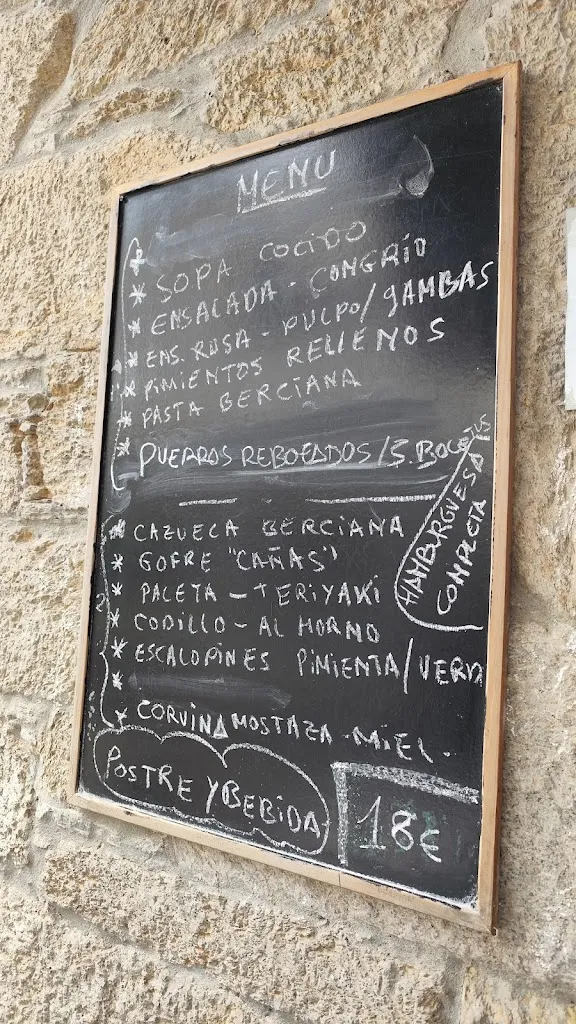 MENU
* SOPA COCIDO
* ENSALADA - CONGRIO
* ENS. RUSA - PULPO/GAMBAS
* PIMIENTOS RELLENOS
* PASTA BERCIANA
* PUERROS REBOZADOS/S.
* CAZUELA BERCIANA
* GOFRE "CAÑAS"
* PALETA - TERIYAKI
* CODILLO - AL HORNO
* ESCALOPINES PIMIENTA/
*
* CORVINA MOSTAZA - MIEL.
HAMBURGUESA
COMPLETA
POSTRE Y BEBIDA
18€